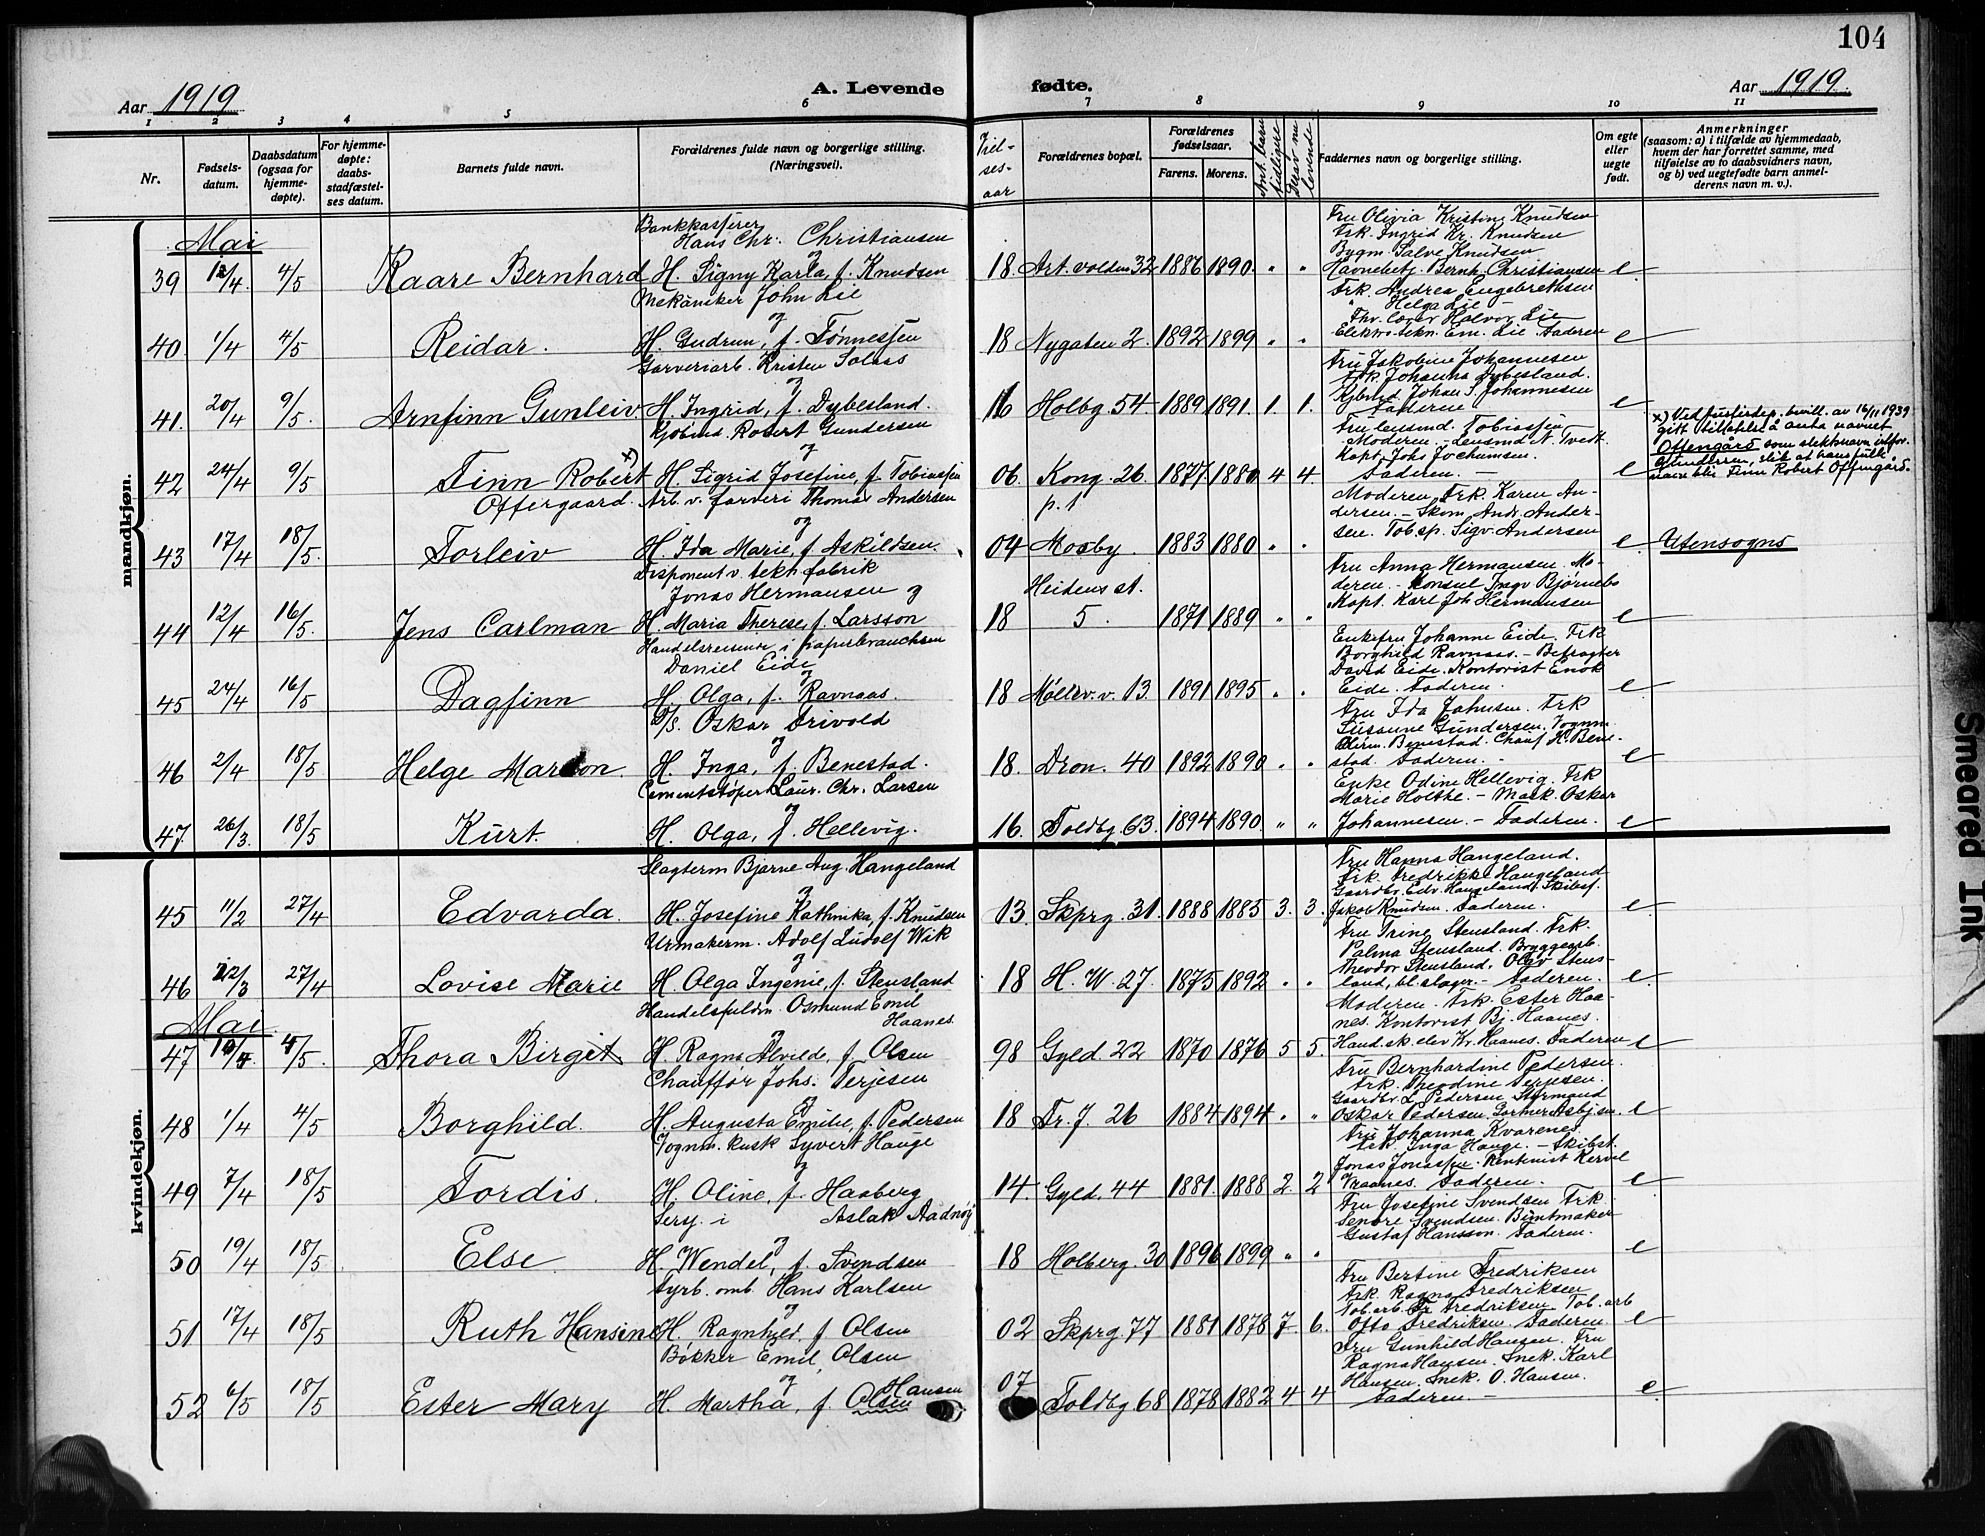 104
Aar 1919
A. Levende fødte.
Aar 1919
1 2 3 4 5 6 7 8 9 10 11
Nr.
Fødsels-
datum.
Daabsdatum
(ogsaa for
hjemme-
døpte).
For hjemme-
døpte:
daabs-
stadfæstel-
ses datum.
Barnets fulde navn.
Forældrenes fulde navn og borgerlige stilling.
(Næringsvei).
Viel-
ses-
aar
Forældrenes bopæl.
Forældrenes
fødselsaar.
Farens. Morens.
Ant. barn
tidligere
Derav nu
levende
Faddernes navn og borgerlige stilling.
Om egte
eller
uegte
født.
Anmerkninger
(saasom: a) i tilfælde av hjemmedaab,
hvem der har forrettet samme, med
tilføielse av to daabsvidners navn,
og b) ved uegtefødte barn anmel-
derens navn m. v.).
mandkjøn.
Mai
Bankkasserer
Hans Chr. Christiansen
og
39 12/4 4/5 Kaare Bernhard H. Signy Karla, f. Knudsen 18. Art. volden 32 1886 1890 " " e
Fru Olivia Kristine Knudsen
Frk. Ingrid Kr. Knudsen
Bygm. Salve Knudsen
Havnebetj. Bernh. Christiansen
Mekaniker John Lie
og
40. 1/4 4/5 Reidar. H. Gudrun, f. Tønnessen 18 Nygaten 2. 1892 1899 " " e
Frk. Andrea Engebrethsen
" Helga Lie
Fhv. lærer Halvor Lie
Elektrotekn. Em. Lie. Faderen
Garveriarb. Kristen Solaas
og
41. 20/4 9/5. Arnfinn Gunleiv H. Ingrid, f. Dybesland. 16 Holbg. 54 1889 1891. 1. 1. e
Fru Jakobine Johannesen
Frk. Johanna Dybesland.
Kjbmd. Johan S. Johannesen
Faderen
Kjøbmd. Robert Gundersen
og
42 24/4 9/5 Finn Robert x) H. Sigrid Josefine, f. Tobiassen 06. Kong. 26. 1877. 1880. 4 4. e
Offergaard. p. 1
Fru lensmd. Tobiassen
Moderen. - Lensmd N. Tvedt.
Kapt. Johs Jochumsen.
Faderen. -
x) Ved justisdep. bevill. av 16/11 1939
gitt tillatelse å anta navnet
Offengård som slektsnavn istfor.
Gundersen, slik at hans fulle
navn blir Finn Robert Offengård.
Arb. v. farveri Thomas Andersen
og
43 17/4 18/5. Torleiv H. Ida Marie, f. Askildsen. 04 Mosby. 1883 1880 " " e Utensogns
Moderen, Frk. Karen An-
dersen. - Skom. Andr. Ander-
sen. Tob.sp. Sigv. Andersen
Disponent v. tekn. fabrik
Jonas Hermansen og
44 12/4 16/5. Jens Carlman H. Maria Therese, f. Larsson 18 Heidens st. 5. 1871 1889 " " e
Fru Anna Hermansen. Mo-
deren. - Konsul Ingv. Bjørnebo
Kapt. Karl Joh. Hermansen
Handelsreisende i papirbranchsen
Daniel Eide
og
45 24/4 16/5 Dagfinn H. Olga, f. Ravnaas. 18 Møllev. v. 13. 1891 1895 " " e
Enkefru Johanne Eide. Frk
Borghild Ravnaas. - Befragter
David Eide. Kontorist Enok
Eide. Faderen.
Oskar Trivold
og
46 2/4 18/5 Helge Mardon. H. Inga, f. Benestad. 18. Dron. 40 1892 1890 " " e
Fru Ida Johnsen. Frk
Susanne Gundersen. Vognm.
Benestad. Chauf. H. Bene-
stad. Faderen. -
Cementstøper Laur. Chr. Larsen
og
47. 26/3. 18/5 Kurt. H. Olga, f. Hellevig. 16. Toldbg. 63. 1894 1890. " " e
Enke Odine Hellevig. Frk
Marie Holthe. - Mask. Oskar
Johannesen. - Faderen.
kvindekjøn.
Slagterm Bjarne Aug. Hangeland
og
45 11/2 27/4 Edvarda. H. Josefine Kathinka, f. Knudsen 13. Skprg. 31. 1888 1885 3. 3. e
Fru Hanna Hangeland.
Frk. Fredrikke Hangeland
Gaardbr. Edv. Hangeland. Skibsf.
Jakob Knudsen. Faderen.
Urmakerm. Adolf Ludolf Wik
og
46 22/3 27/4 Lovise Marie H. Olga Ingenie, f. Stensland 18 H. W. 27. 1875 1892 " " e.
Fru Trine Stensland. Frk.
Palma Stensland. Bryggearb.
Theodor Stensland. Olav Stens-
land, bl. slager. - Faderen.
Mai
Handelsfuldm. Osmund Emil
Haanes.
og
47 10/4. 4/5. Thora Birgit H. Ragna Alvilde, f. Olsen 98 Gyld. 22 1870 1876 5 5. e
Moderen. Frk. Ester Haa-
nes. Kontorist Bj. Haanes.
Hand.sk. elev Kr. Haanes. Faderen
Chauffør Johs. Terjesen
og
48 1/4 4/5 Borghild. H. Augusta Emilie, f. Pedersen 18 Tr. J. 26 1884 1894 " " e
Fru Bernhardine Pedersen.
Frk. Theodine Terjesen.
Gaardbr. L. Pedersen. Styrmand
Oskar Pedersen. Gartner Asbjsen.
Vognm. kusk Syvert Hauge
og
49 7/4 18/5 Tordis. H. Oline, f. Haaberg 14. Gyld. 44 1881. 1888 2. 2 e
Fru Johanna Kvarenes.
Frk. Inga Hauge. - Skibst.
Jonas Jonassen. Rentenist Kervel
Vraanes. Faderen.
Sersj. i Aslak Aadnøy
og
50 19/4 18/5 Else. H. Wendel, f. Svendsen 18 Holberg. 30 1896 1899 " " e
Fru Josefine Svendsen. Frk.
Senore Svendsen. Buntmaker
Gustaf Hansson. Faderen.
Fyrb. omb. Hans Karlsen
og
51 17/4 18/5 Ruth Hansine H. Ragnhild, f. Olsen 02 Skprg. 77 1881 1878 7. 6. e
Fru Bertine Fredriksen
Frk. Ragna Fredriksen
Tob. arb. Fr. Fredriksen Tob. arb
Otto Fredriksen. Faderen
Bøkker Emil Olsen
og
52 6/5 18/5 Ester Mary H. Martha, f. Olsen Hansen 07 Toldbg 68 1878 1882 4 4 e
Fru Gunhild Hansen. Fru
Ragna Hansen. Snek. Karl
Hansen. Snek. O. Hansen.
Faderen. -
Smeared Ink